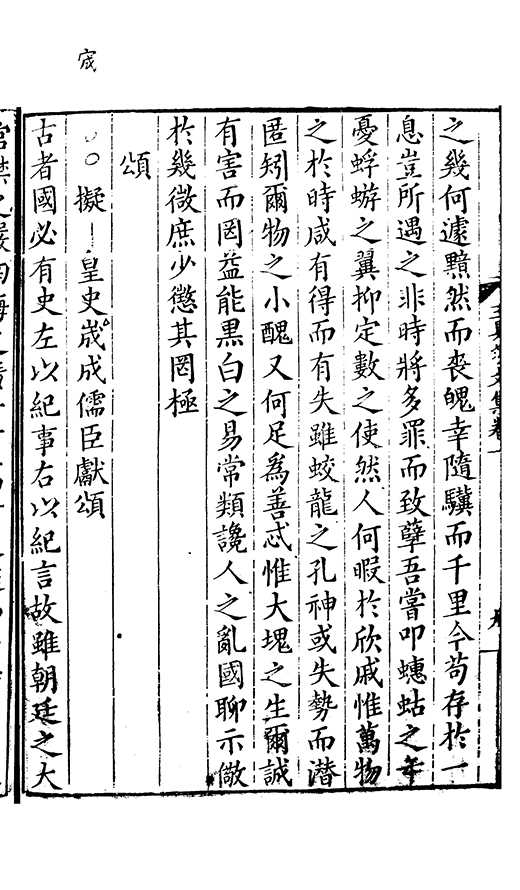 宬
之幾何遽黯然而喪魄幸隨驥而千里今苟存於一
息豈所遇之非時將多罪而致孽吾嘗叩蟪蛄之年
憂蜉蝣之翼抑定數之使然人何暇於欣戚惟萬物
之於時咸有得而有失雖蛟龍之孔神或失勢而潛
匿矧爾物之小醜又何足為善忒惟大塊之生爾誠
有害而罔益能黒白之易常類讒人之亂國聊示儆
於幾微庶少懲其罔極
頌
擬皇史宬成儒臣獻頌
古者國必有史左以紀事右以紀言故雖朝廷之大